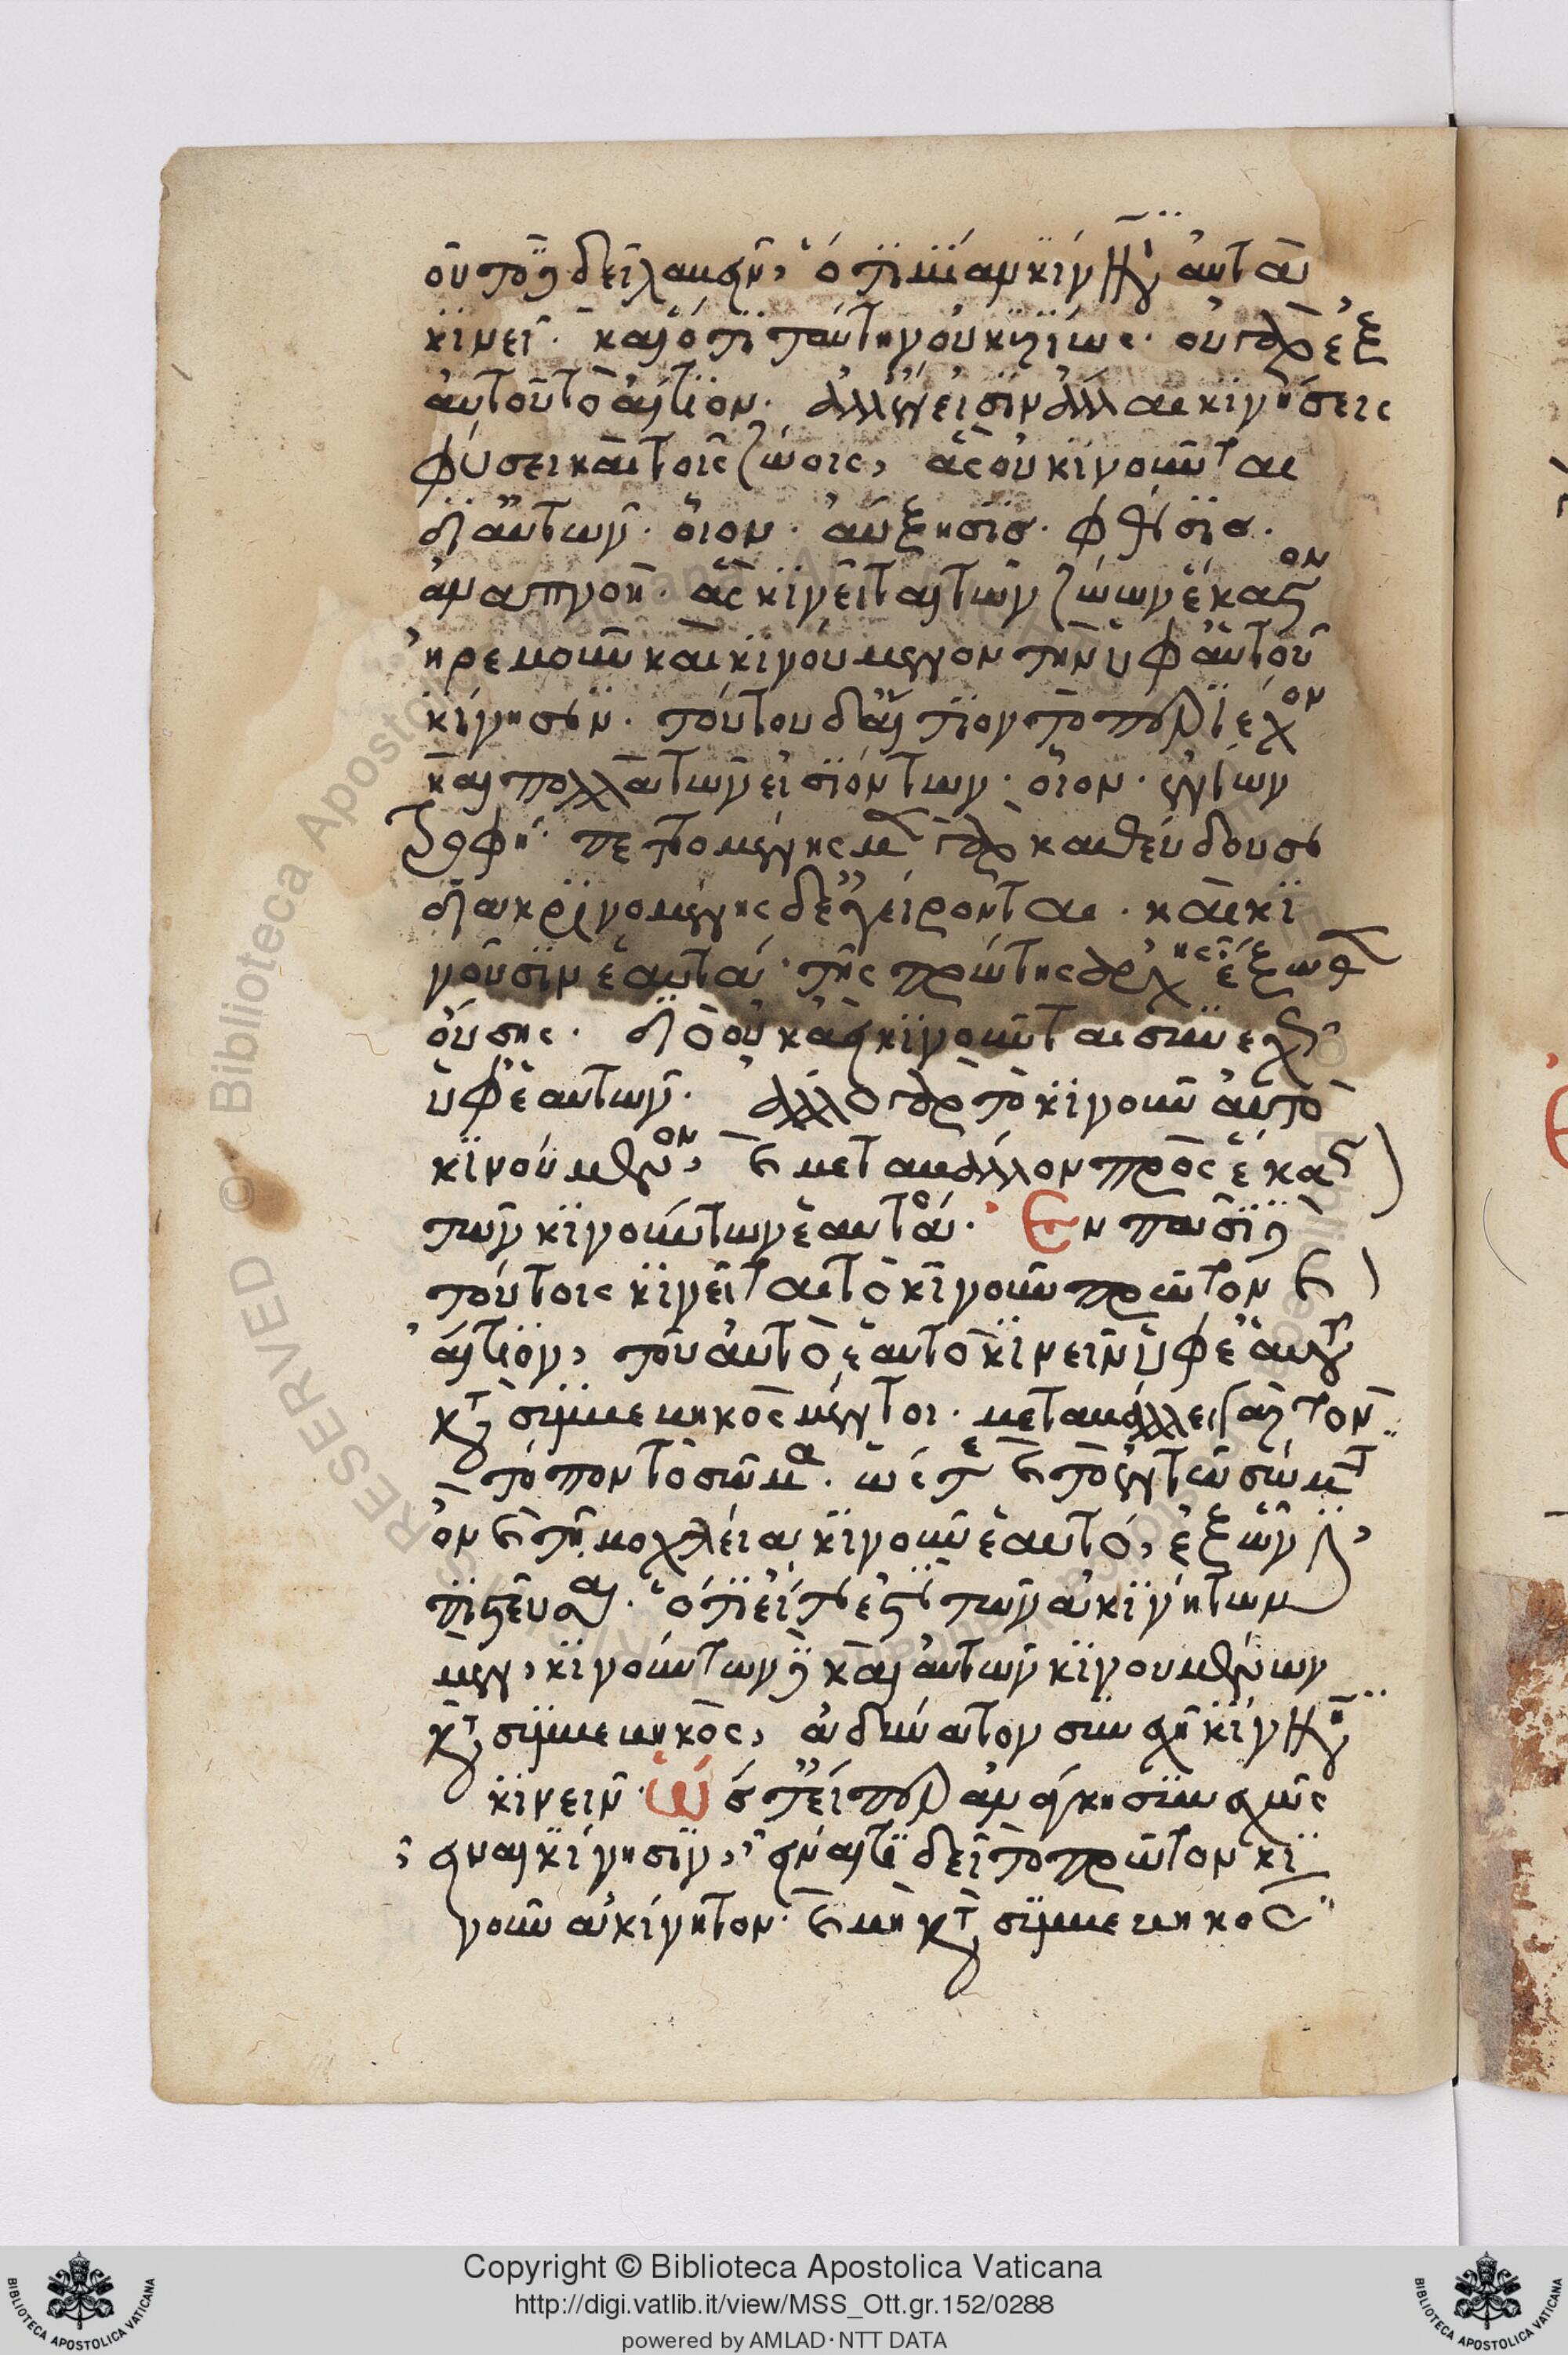 οῦν τοῦτο δεῖ λαβεῖν, ὅτι μίαν κίνησιν αὐτὰ
κινεῖ. καὶ ὅτι ταύτην οὐ κυρίως. οὐ γὰρ ἐξ
αὐτοῦ τὸ αἴτιον. ἀλλ' ἔνεισιν ἄλλαι κινήσεις
φύσει καὶ τοῖς ζώοις, ἃς οὐ κινοῦνται
δι' αὐτῶν. οἷον. αὔξησις. φθίσις.
ἀναπνοή. ἃς κινεῖται τῶν ζώων ἕκαστον
ἠρεμοῦν καὶ κινούμενον τὴν ὑφ' αὑτοῦ
κίνησιν. τούτου δ' αἴτιον τὸ περιέχον
καὶ πολλὰ τῶν εἰσιόντων. οἷον. ἐνίων
τροφή. πεττομένης μὲν γὰρ καθεύδουσι
διακρινομένης δ' ἐγείρονται. καὶ κι
νοῦσιν ἑαυτά. τῆς πρώτης ἀρχῆς ἔξωθεν
οὔσης. διὸ οὐκ ἀεὶ κινοῦνται συνεχῶς
ὑφ' ἑαυτῶν. ἄλλο γὰρ τὸ κινοῦν αὐτὸ
κινούμενον, καὶ μεταβάλλον πρὸς ἕκαστον
τῶν κινούντων ἑαυτά. Ἐν πᾶσι δὲ
τούτοις κινεῖται τὸ κινοῦν πρῶτον καὶ
αἴτιον, τοῦ αὐτὸ ἑαυτὸ κινεῖν ὑφ' ἑαυτοῦ
κατὰ συμβεβηκὸς μέντοι. μεταβάλλει γὰρ τὸν
τόπον τὸ σῶμα. ὥστε καὶ τὸ ἐν τῷ σώματι
ὂν καὶ τῇ μοχλείᾳ κινοῦν ἑαυτό, ἐξ ὧν δεῖ
πιστεῦσαι. ὅτι εἴ τί ἐστι τῶν ἀκινήτων
μὲν, κινούντων δὲ καὶ αὐτῶν κινουμένων
κατὰ συμβεβηκὸς, ἀδύνατον συνεχῆ κίνησιν
κινεῖν. Ὥστ' εἴπερ ἀνάγκη συνεχῶς
εἶναι κίνησιν, εἶναί τι δεῖ τὸ πρῶτον κι
νοῦν ἀκίνητον. καὶ μὴ κατὰ συμβεβηκός
Copyright © Biblioteca Apostolica Vaticana
http://digi.vatlib.it/view/MSS_Ott.gr.152/0288
powered by AMLAD·NTT DATA